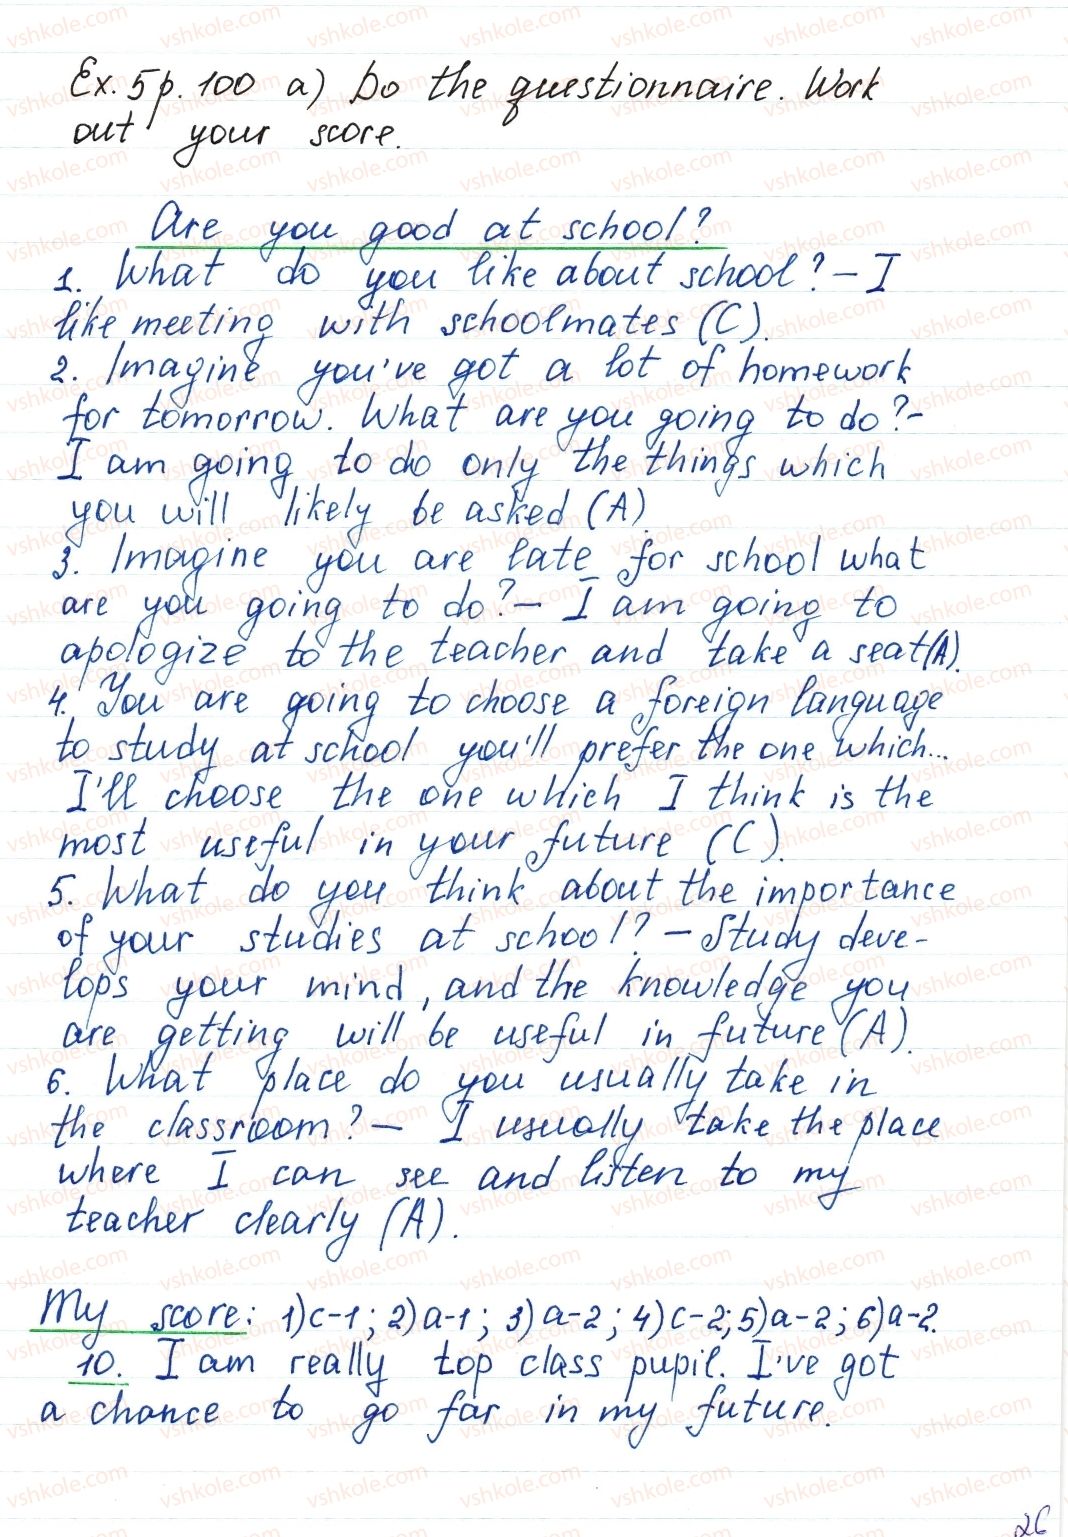 Ex. 5 p. 100 a) Do the questionnaire. Work
out your score.
Are you good at school?
1. What do you like about school? – I
like meeting with schoolmates (C).
2. Imagine you've got a lot of homework
for tomorrow. What are you going to do? –
I am going to do only the things which
you will likely be asked (A).
3. Imagine you are late for school what
are you going to do? – I am going to
apologize to the teacher and take a seat (A).
4. You are going to choose a foreign language
to study at school you'll prefer the one which...
I'll choose the one which I think is the
most useful in your future (C).
5. What do you think about the importance
of your studies at school? – Study deve-
lops your mind, and the knowledge you
are getting will be useful in future (A).
6. What place do you usually take in
the classroom? – I usually take the place
where I can see and listen to my
teacher clearly (A).
My score: 1) c-1; 2) a-1; 3) a-2; 4) c-2; 5) a-2; 6) a-2.
10. I am really top class pupil. I've got
a chance to go far in my future.
26
vshkole.com